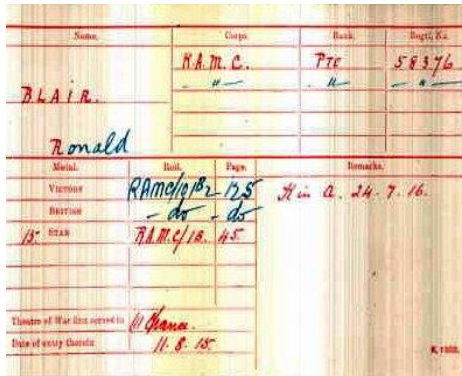 Name. Corps. Rank. Regtl. No.
R.A.M.C. PTE 58376
- " - - " - - " -
BLAIR.
Ronald
Medal. Roll. Page. Remarks.
VICTORY RAMC/101B2 125 K in A. 24.7.16.
BRITISH - do - do
15 STAR R.A.M.C/1B. 45.
Theatre of War first served in (1) France.
Date of entry therein 11. 8. 15.